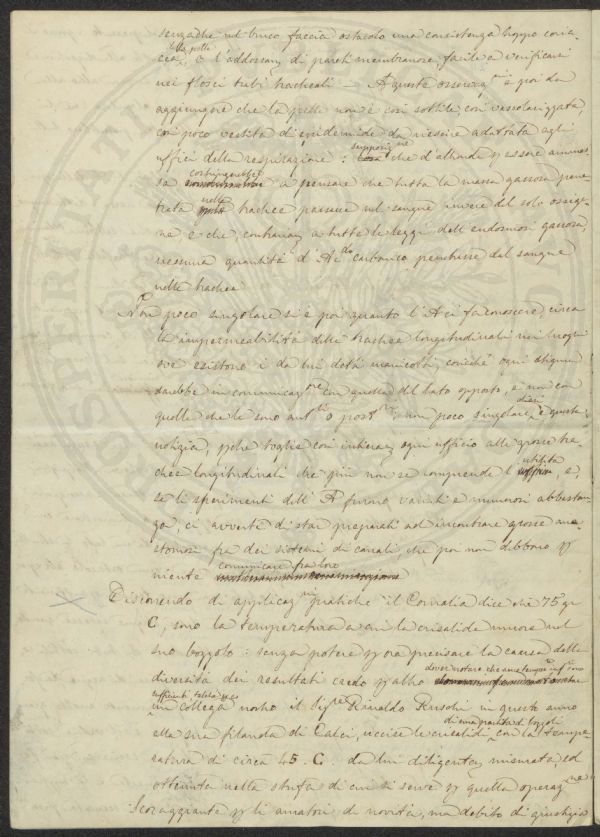 senza che nel bruco faccia ostacolo una consistenza troppo coria-
cea della pelle, o l'addossarsi di pareti membranose facile a verificarsi
nei flosci tubi tracheali — A queste osservaz.ni è poi da
aggiungere che la pelle non è così sottile, così vascolarizzata,
così poco vestita di epidermide da riescire adattata agli
uffici della respirazione: supposiz.ne che d'altronde p essere ammes-
sa costringerebbe a pensare che tutta la massa gassosa pene-
trata nelle trachee passasse nel sangue invece del solo ossige-
ne e che, contrariam a tutte le leggi dell'endosmosi gassosa,
nessuna quantità d'Acido carbonico penetrasse dal sangue
nelle trachee
Non poco singolare si è poi quanto l'A ci fa conoscere, circa
la impermeabilità delle trachee longitudinali nei luoghi
ove esistono i da lui detti manicotti, cosiché ogni stigma
sarebbe in comunicaz.ne con quello del lato opposto, e non con
quelle che le sono ant.ri o post.ri; non poco singolare dissi è questa
notizia, pche toglie così interam ogni ufficio alle grosse tra-
chee longitudinali che più non se comprende l'utilità, e,
se li sperimenti dell'A furono variati e numerosi abbastan-
za, ci avverte di star preparati ad incontrare grosse ana-
stomosi fra dei sistemi di canali, che poi non debbono p
niente comunicare fra loro
Discorrendo di applicaz.ni pratiche il Cornalia dice che 75 gr
C, sono la temperatura a cui la crisalide muore nel
suo bozzolo: senza potere p ora precisare la causa della
diversità dei resultati credo p altro dover notare che
un collega nostro il Sig.re Rinaldo Ruschi in quest'anno
alla sua filanda di Calci, uccise le crisalidi di una partita di bozzoli con la tempe-
ratura di circa 45. C. da lui diligentem misurata, ed
ottenuta nella stufa di cui si serve p quella operaz.ne
Scoraggiante p li amatori di novità, ma debito di giustizia